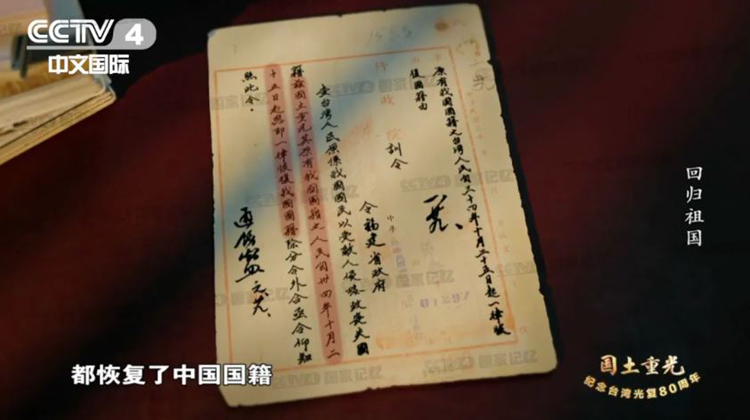 CCTV 4
中文国际
原有我国国籍之台湾人民自三十四年十月二十五日起一律恢
复国籍由
行政院训令
令福建省政府
查台湾人民原系我国国民以受敌人侵略致丧失国
籍兹国土重光其原有我国国籍之人民自卅四年十月二
十五日起应即一律恢复我国国籍除分令外合亟令仰知
照此令。
01297
回归祖国
都恢复了中国国籍
国土重光
纪念台湾光复80周年
国家记忆